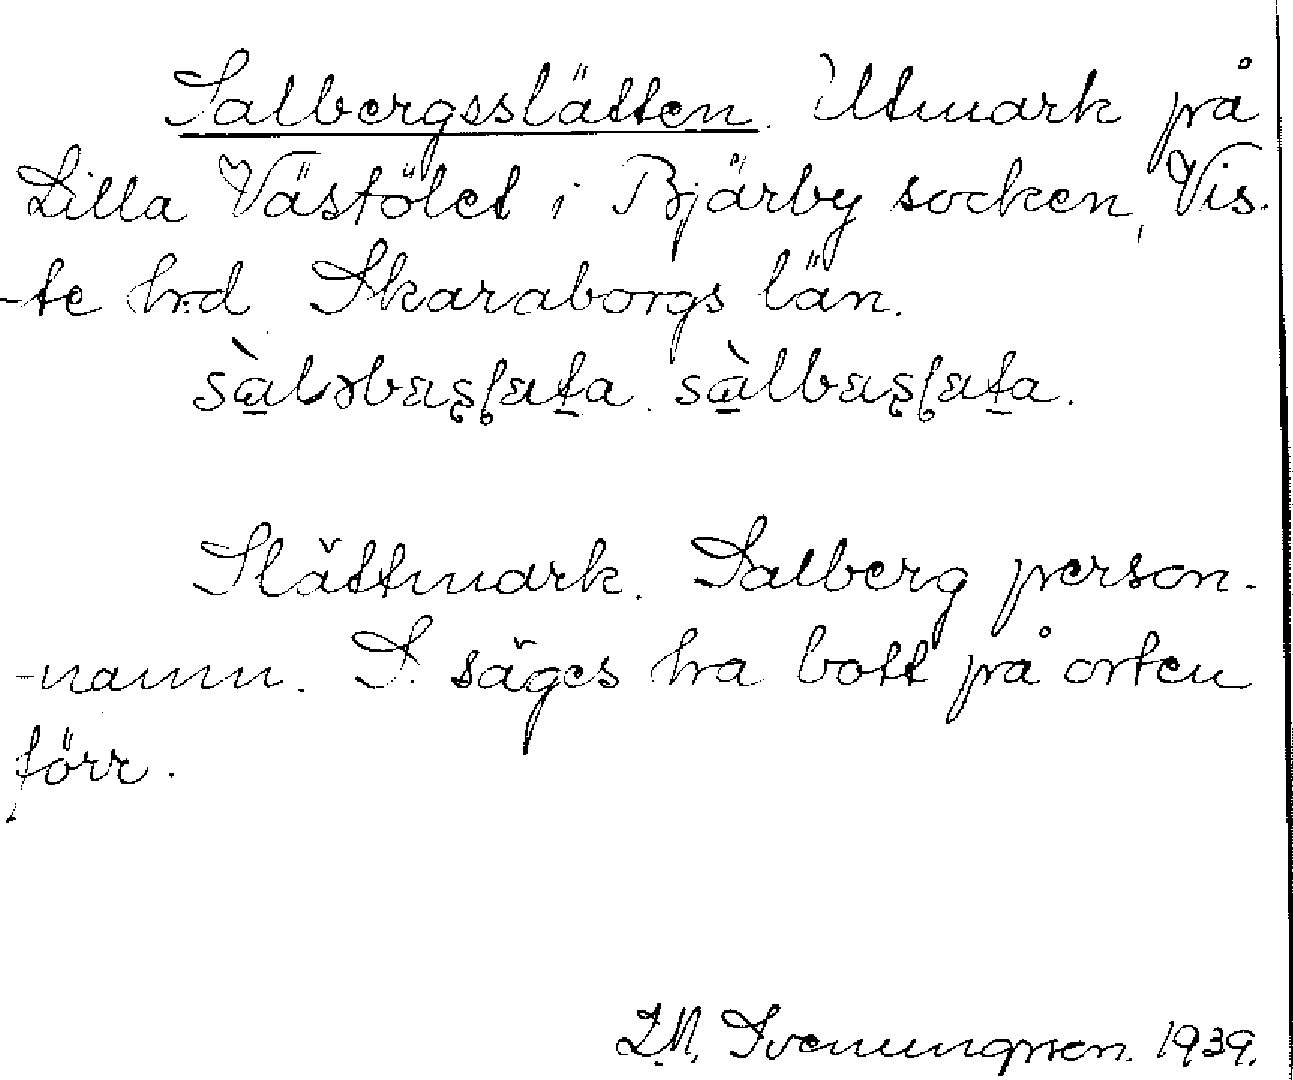 Salbergsslätten. Utmark på
Lilla Västölet i Bjärby socken, Vis-
-te hrd Skaraborgs län.
Slättmark. Salberg person-
-namn. S. säges ha bott på orten
förr.
Svenungsson. 1939.